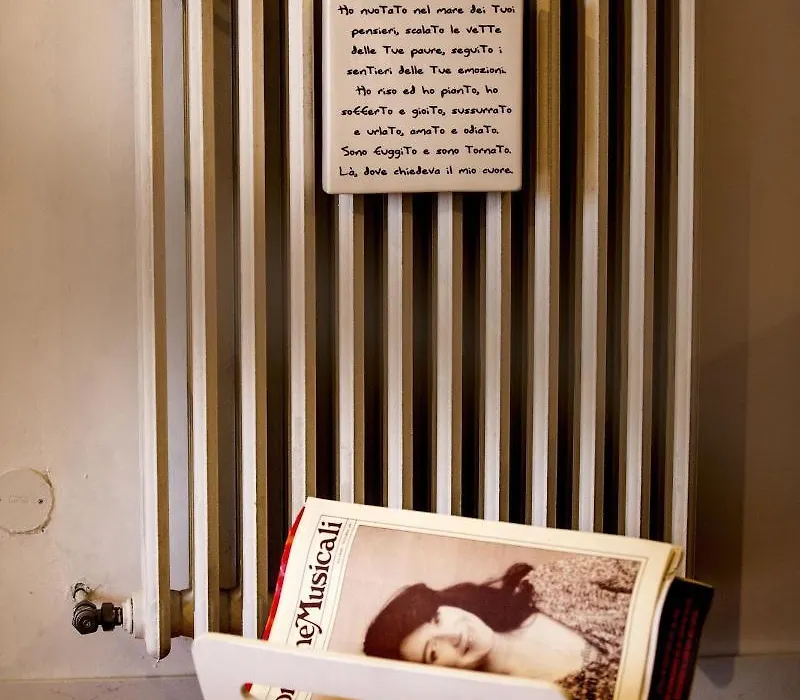 Ho nuoTaTo nel mare dei Tuoi
pensieri, scalaTo le veTTe
delle Tue paure, seguiTo i
senTieri delle Tue emozioni.
Ho riso ed ho pianTo, ho
soffерTo e gioiTo, sussurraTo
e urlaTo, amaTo e odiaTo.
Sono fuggiTo e sono TornaTo.
Là, dove chiedeva il mio cuore.
neMusicali